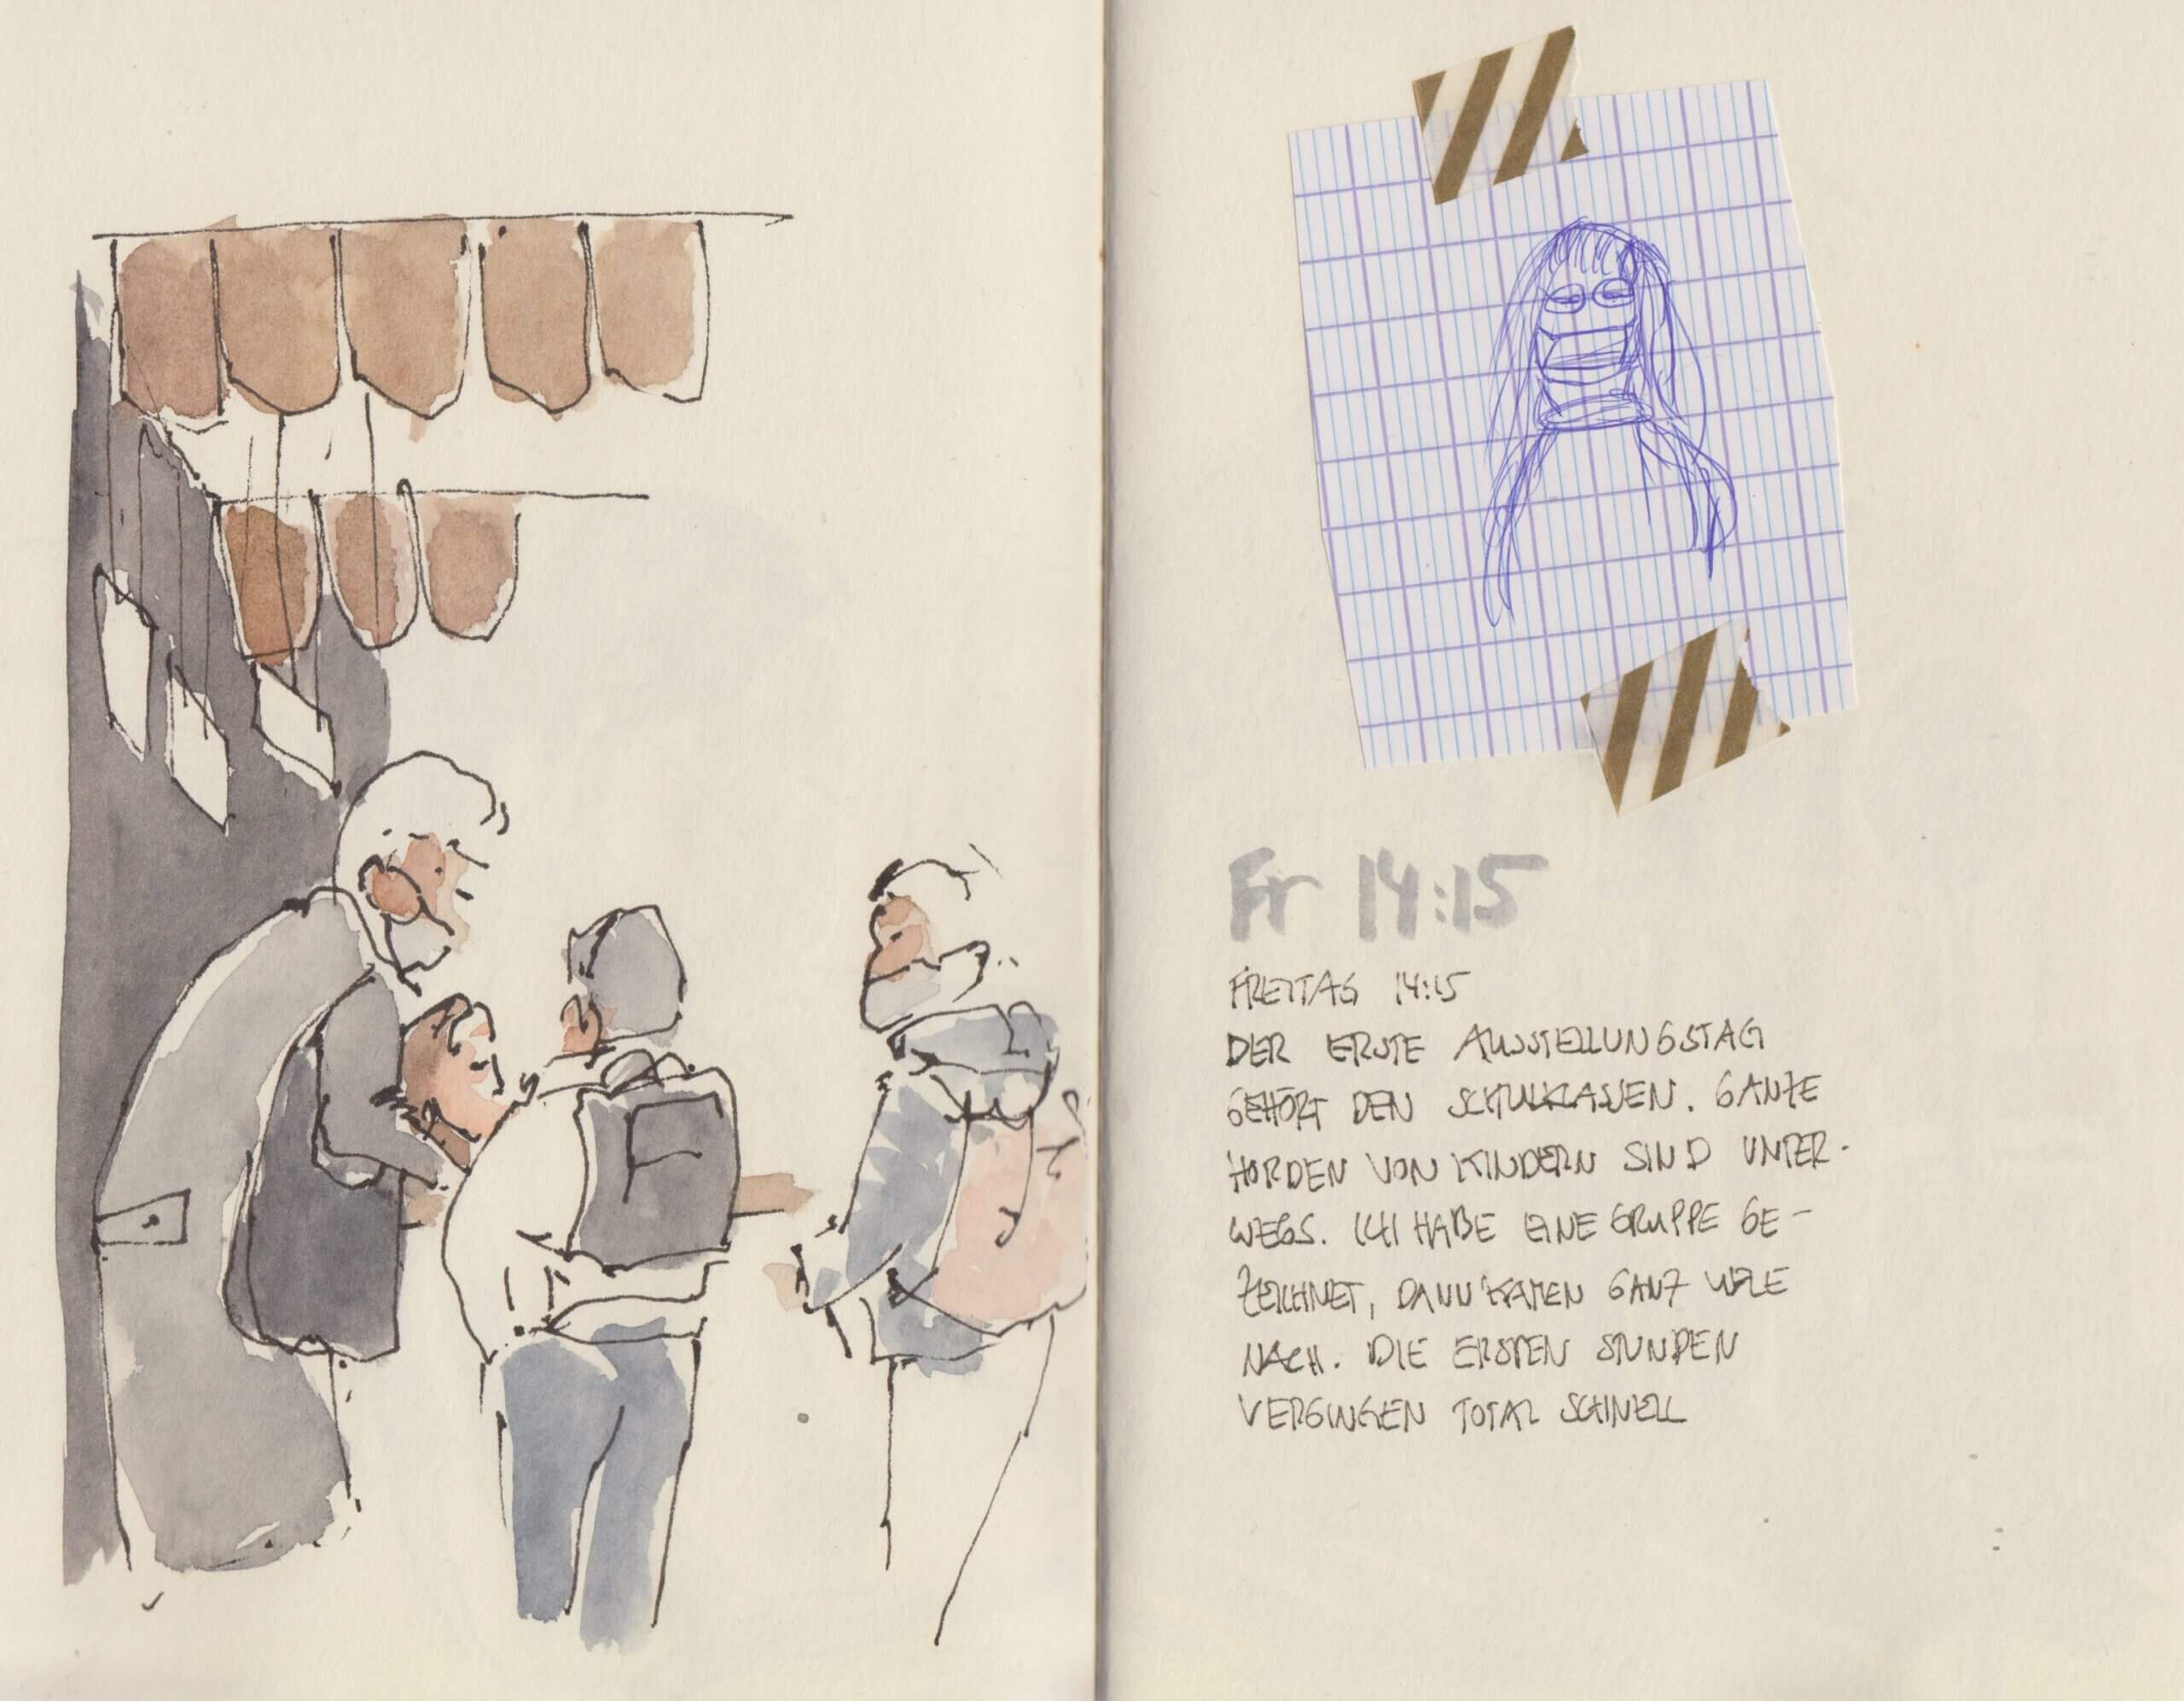 Fr 14:15
FREITAG 14:15
DER ERSTE AUSSTELLUNGSTAG
GEHÖRT DEN SCHULKLASSEN. GANZE
HORDEN VON KINDERN SIND UNTER-
WEGS. ICH HABE EINE GRUPPE GE-
ZEICHNET, DANN KAMEN GANZ VIELE
NACH. DIE ERSTEN STUNDEN
VERGINGEN TOTAL SCHNELL